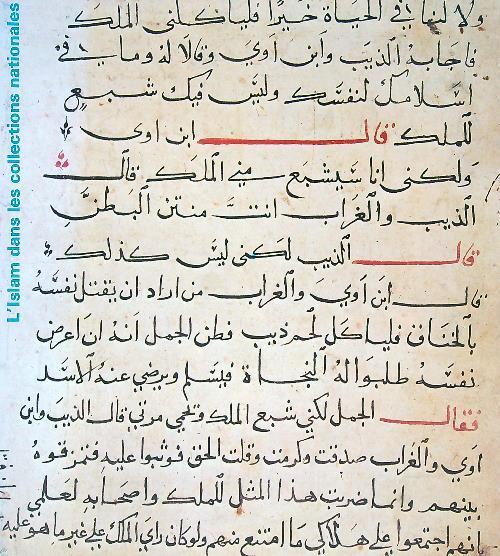 ولا لنفا في الحياة خيرا فلياكلني الملك
فاجابه الذيب وابن اوي وقالا له وما في
اسلامك لنفسك وليس فيك شبع
للملك قال ابن اوي
ولكني انا سيشبع مني الملك قال
الذيب والغراب انت منتن البطن
قال الذيب لكني ليس كذلك
قال ابن اوي والغراب من اراد ان يقتل نفسه
بالخناق فلياكل لحم ذيب فظن الجمل انه ان اعرض
نفسه طلبوا له النجاة فيسلم ويرضي عنه الاسد
فقال الجمل لكني شبع الملك ولحمي مرئي قال الذيب وابن
اوي والغراب صدقت وكرمت وقلت الحق فوثبوا عليه فمزقوه
بينهم وانما ضربت هذا المثل للملك واصحابه لعلمي
انهم اجتمعوا على هلاكي ما امتنع منهم ولو كان راي الملك على غير ما هو عليه
L'Islam dans les collections nationales